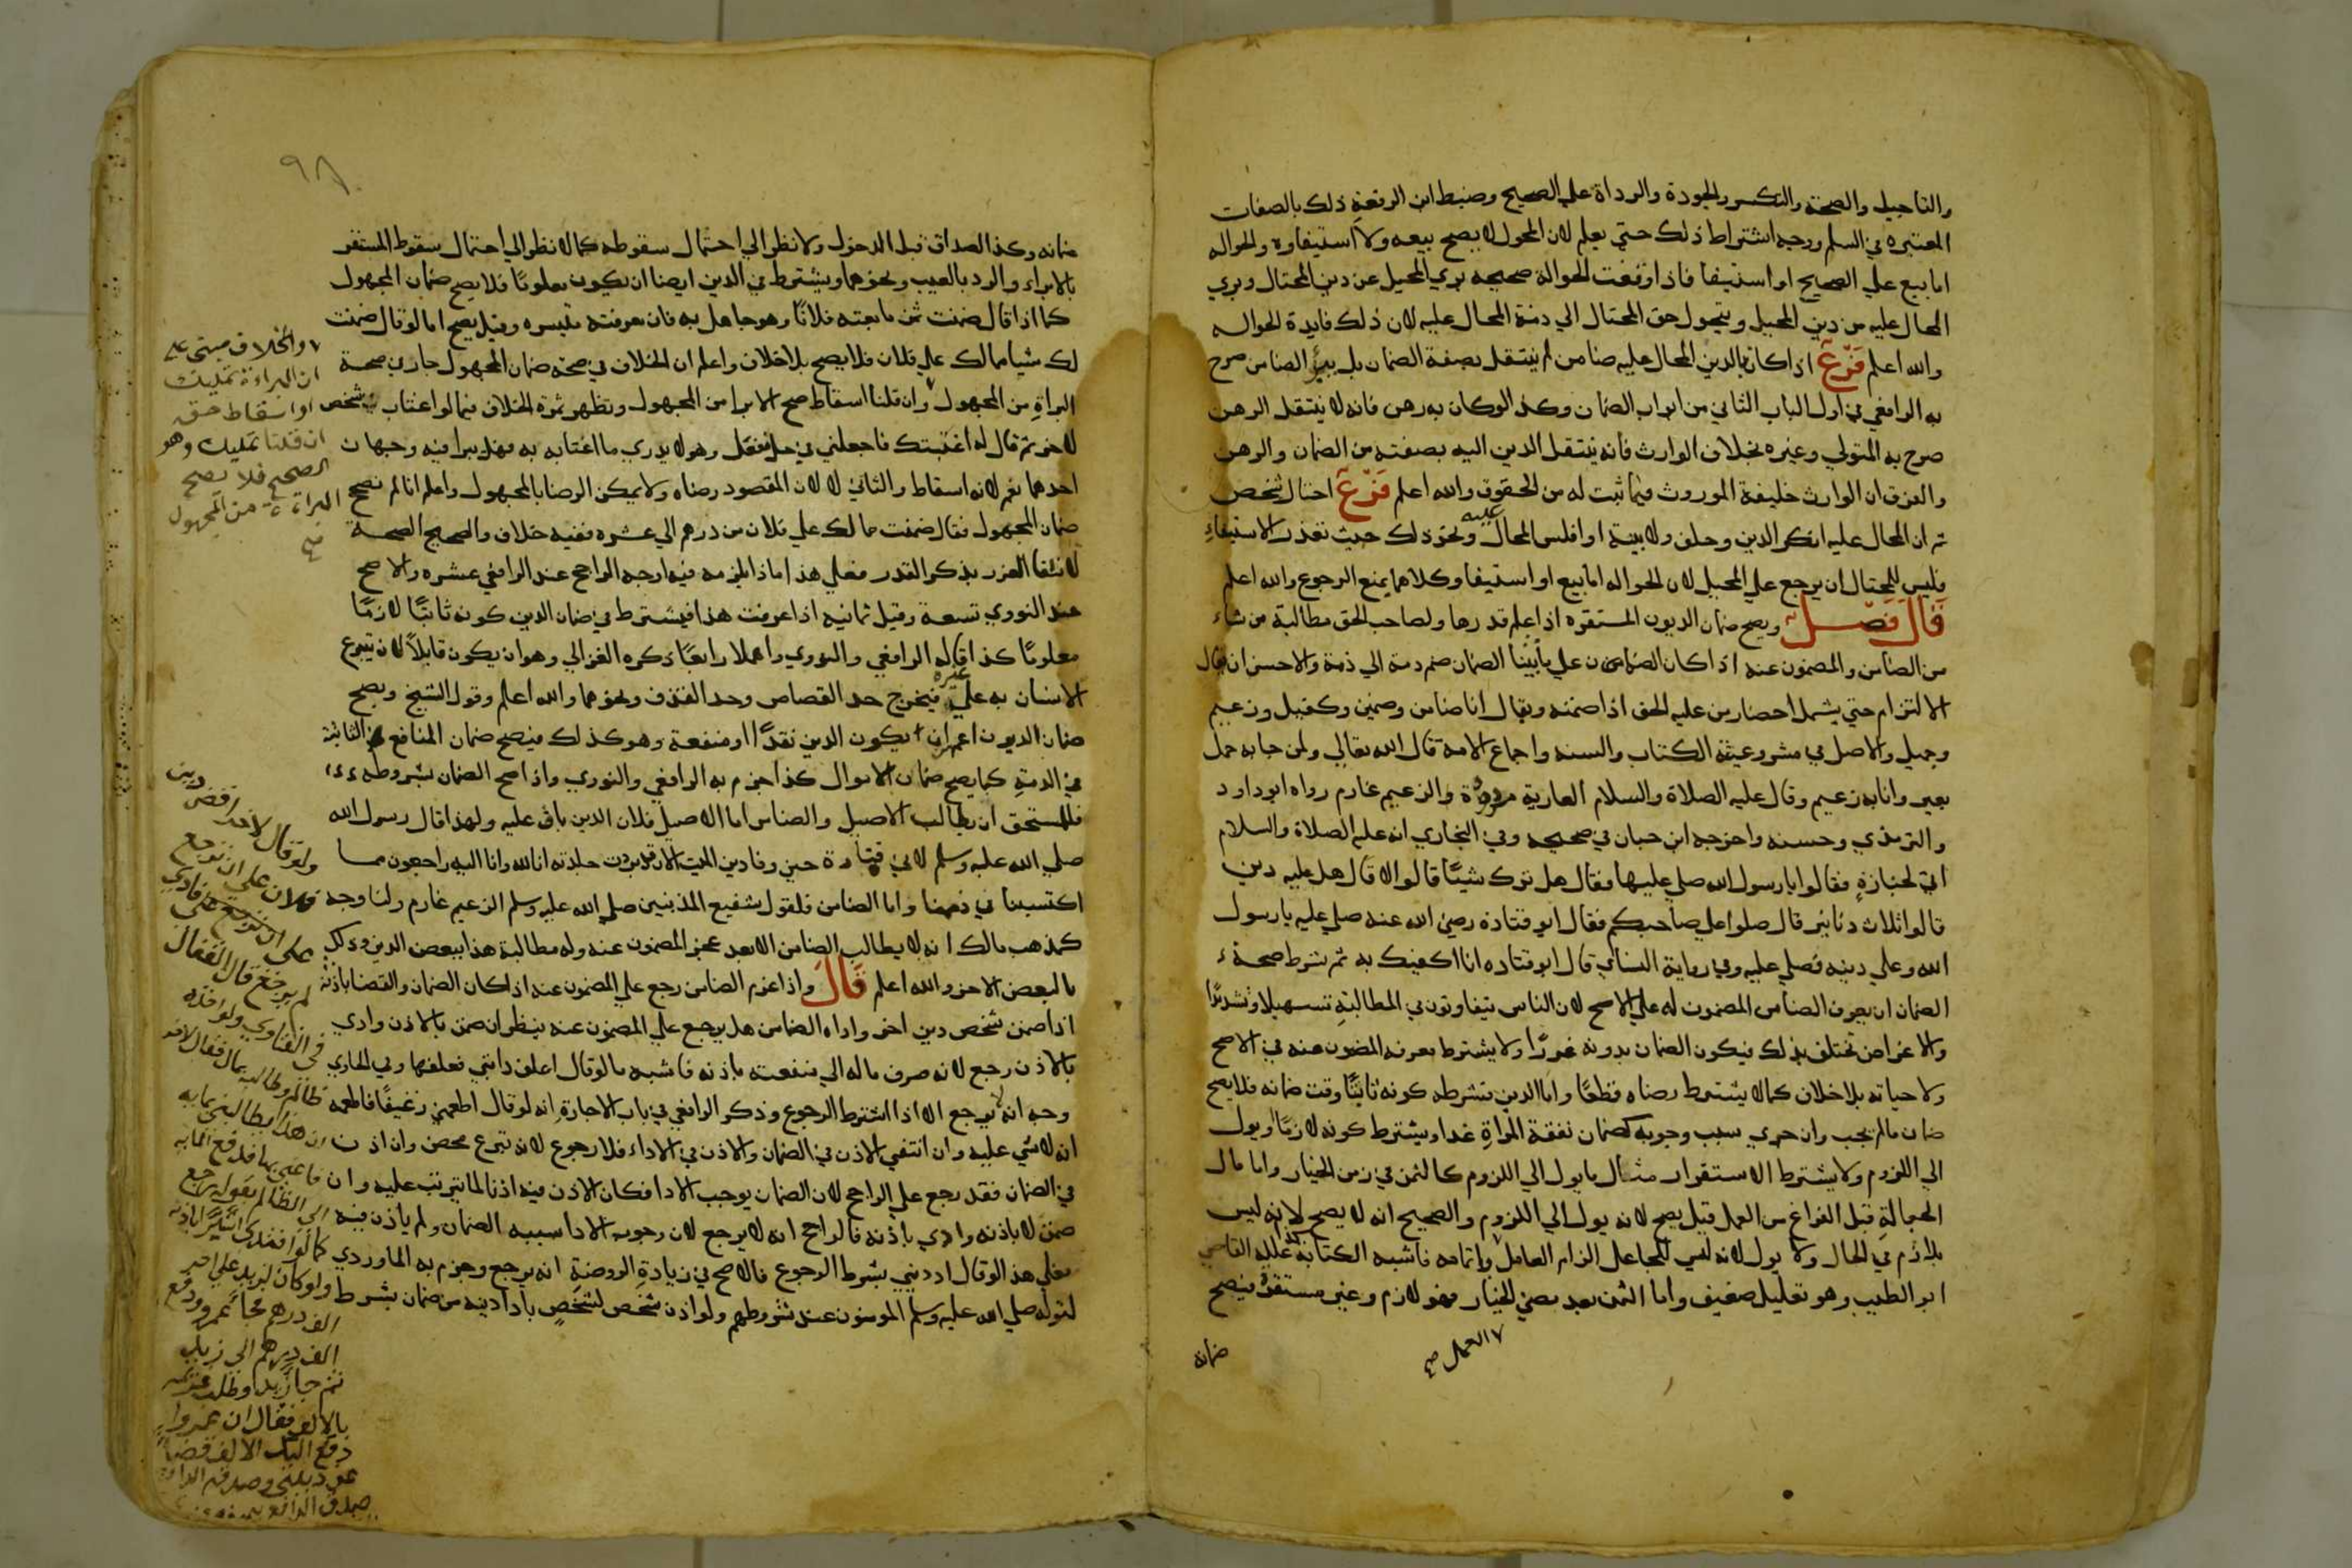 والتاجيل والصحة والتكسر والجودة والرداة علي الصحيح وضبط ابن الرفعة ذلك بالصفات
المعتبره في السلم ووجه اشتراط ذلك حتي يعلم لان المجهول لا يصح بيعه ولا استيفاوه والحواله
اما بيع علي الصحيح او استيفا فاذا وقعت الحوالة صحيحه بري المحيل عن دين المحتال وبري
المحال عليه من دين المحيل ويتحول حق المحتال الي ذمة المحال عليه لان ذلك فايدة الحواله
والله اعلم فرع اذا كان بالدين المحال عليه ضامن لم ينتقل بصفة الضمان بل يبرا الضامن صرح
به الرافعي في اول الباب الثاني من ابواب الضمان وكذا لو كان به رهن فانه لا ينتقل الرهن
صرح به المتولي وغيره بخلاف الوارث فانه ينتقل الدين اليه بصفته من الضمان والرهن
والفرق ان الوارث خليفة الموروث فيما ثبت له من الحقوق والله اعلم فرع احتال شخص
ثم ان المحال عليه انكر الدين وحلف ولا بينة او افلس المحال عليه ونحو ذلك حيث تعذر الاستيفاء
فليس للمحتال ان يرجع علي المحيل لان الحواله اما بيع او استيفا وكلاهما يمنع الرجوع والله اعلم
قال فصل ويصح ضمان الديون المستقره اذا علم قدرها ولصاحب الحق مطالبة من شاء
من الضامن والمضمون عنه اذا كان الضمان علي ما بينا الضمان ضم ذمة الي ذمة والاحسن ان يقال
الالتزام حتي يشمل احضار من عليه الحق اذا ضمنه ويقال انا ضامن وضمين وكفيل وزعيم
وحميل والاصل في مشروعيته الكتاب والسنه واجماع الامه قال الله تعالي ولمن جا به حمل
بعير وانا به زعيم وقال عليه الصلاة والسلام العارية مردودة والزعيم غارم رواه ابو داود
والترمذي وحسنه واخرجه ابن حبان في صحيحه وفي البخاري انه عليه الصلاة والسلام
اتي لجنازة فقالوا يا رسول الله صلي عليها فقال هل ترك شيئا قالوا لا قال هل عليه دين
قالوا ثلاث دنانير قال صلوا علي صاحبكم فقال ابو قتادة رضي الله عنه صلي عليه يا رسول
الله وعلي دينه فصلي عليه وفي رواية النسائي قال ابو قتاده انا اكفيك به ثم شرط صحة
الضمان ان يعرف الضامن المضمون له علي الاصح لان الناس يتفاوتون في المطالبة تسهيلا وتشديدا
والاغراض تختلف بذلك فيكون الضمان بدونه غررا ولا يشترط معرفه المضمون عنه في الاصح
ولا حياته بلا خلاف كما لا يشترط رضاه قطعا واما الدين فشرطه كونه ثابتا وقت ضمانه فلا يصح
ضمان ما لم يجب وان جري سبب وجوبه كضمان نفقة المراة غدا ويشترط كونه لازما او يول
الي اللزوم ولا يشترط الاستقرار مثال ما يول الي اللزوم كالثمن في زمن الخيار واما مال
الجعالة قبل الفراغ من العمل قيل يصح لانه يول الي اللزوم والصحيح انه لا يصح لانه ليس
بلازم في الحال ولا يول لانه ليس للجاعل الزام العامل واتمامه فاشبه الكتابة علله القاضي
ابو الطيب وهو تعليل ضعيف واما الثمن بعد مضي الخيار فهو لازم وغير مستقر فيصح
٧ العمل صح
ضمانه
٩٨
ضمانه وكذا الصداق قبل الدخول ولا نظر الي احتمال سقوطه كما لا نظر الي احتمال سقوط المستقر
بالابراء والرد بالعيب ونحوهما ويشترط في الدين ايضا ان يكون معلوما فلا يصح ضمان المجهول
كما اذا قال ضمنت ثمن ما بعته فلانا وهو جاهل به فان معرفته متيسره وقيل يصح اما لو قال ضمنت
لك شيا مما لك علي فلان فلا يصح بلا خلاف واعلم ان الخلاف في صحة ضمان المجهول جار في صحة
البراة من المجهول وان قلنا اسقاط صح الابرا من المجهول وتظهر ثمرة الخلاف فيما لو اغتاب شخص
لاخر ثم قال له اغتبتك فاجعلني في حل ففعل وهو لا يدري ما اغتابه به فهل يبرا فيه وجهان
احدهما نعم لانه اسقاط والثاني لا لان المقصود رضاه ولا يمكن الرضا بالمجهول واعلم انا لم نصح
ضمان المجهول فقال ضمنت مالك علي فلان من درهم الي عشره ففيه خلاف والصحيح الصحة
لانتفا الغرر بذكر القدر فعلي هذا ماذا يلزمه فيه اوجه الراجح عند الرافعي عشره والاصح
عند النووي تسعة وقيل ثمانيه اذا عرفت هذا فيشترط في ضمان الدين كونه ثابتا لازما
معلوما كذا قاله الرافعي والنووي واهملا رابعا ذكره الغزالي وهو ان يكون قابلا لان يتبرع
الانسان به علي غيره فيخرج حد القصاص وحد القذف ونحوهما والله اعلم وقول الشيخ ويصح
ضمان الديون اعم من ان يكون الدين نقدا او منفعة وهو كذلك فيصح ضمان المنافع الثابتة
في الذمة كما يصح ضمان الاموال كذا جزم به الرافعي والنووي واذا صح الضمان بشروطه
فللمستحق ان يطالب الاصيل والضامن اما الاصيل فلان الدين باق عليه ولهذا قال رسول الله
صلي الله عليه وسلم لابي قتادة حين وفا دين الميت الان قد بردت جلدته انا لله وانا اليه راجعون مما
اكتسبنا في ذممنا واما الضامن فلقول شفيع المذنبين صلي الله عليه وسلم الزعيم غارم ولنا وجه
كمذهب مالك انه لا يطالب الضامن الا بعد عجز المضمون عنه وله مطالبة هذا ببعض الدين وذلك
بالبعض الاخر والله اعلم قال واذا غرم الضامن رجع علي المضمون عنه اذا كان الضمان والقضا باذنه
اذا ضمن شخص دين اخر واداه الضامن هل يرجع علي المضمون عنه ينظر ان ضمن بالاذن وادي
بالاذن رجع لانه صرف ماله الي منفعته باذنه فاشبه ما لو قال اعلف دابتي فعلفها وفي الحاوي
وجه انه لا يرجع الا اذا اشترط الرجوع وذكر الرافعي في باب الاجارة انه لو قال اطعمني رغيفا فاطعمه
انه لا شي عليه وان انتفي الاذن في الضمان والاذن في الاداء فلا رجوع لانه تبرع محض وان اذن
في الضمان فقط رجع علي الراجح لان الضمان يوجب الادا فكان الاذن فيه اذنا لما يترتب عليه وان
ضمن لا باذنه وادي باذنه فالراجح انه لا يرجع لان وجوب الادا سببه الضمان ولم ياذن فيه
فعلي هذا لو قال اد ديني بشرط الرجوع فالاصح في زيادة الروضة انه يرجع وجزم به الماوردي
لقوله صلي الله عليه وسلم المومنون عند شروطهم ولو اذن شخص لشخص باداء دينه من ضمان بشرط
٧ والخلاف مبني علي
ان البراءة تمليك
او اسقاط حق
ان قلنا تمليك وهو
الصحيح فلا تصح
البراءة من المجهول
صح
ولو قال لاخر اقض دين
فلان علي ان ترجع
لم يرجع قال القفال
في الفتاوي ولو اخذه
ظالم وطالبه بمال فقال لاخر
الف درهم فجا عمرو ودفع
الف درهم الي زيد
ثم جا زيد وطلب
بالالف فقال ان عمروا
دفع اليك الالف قضا